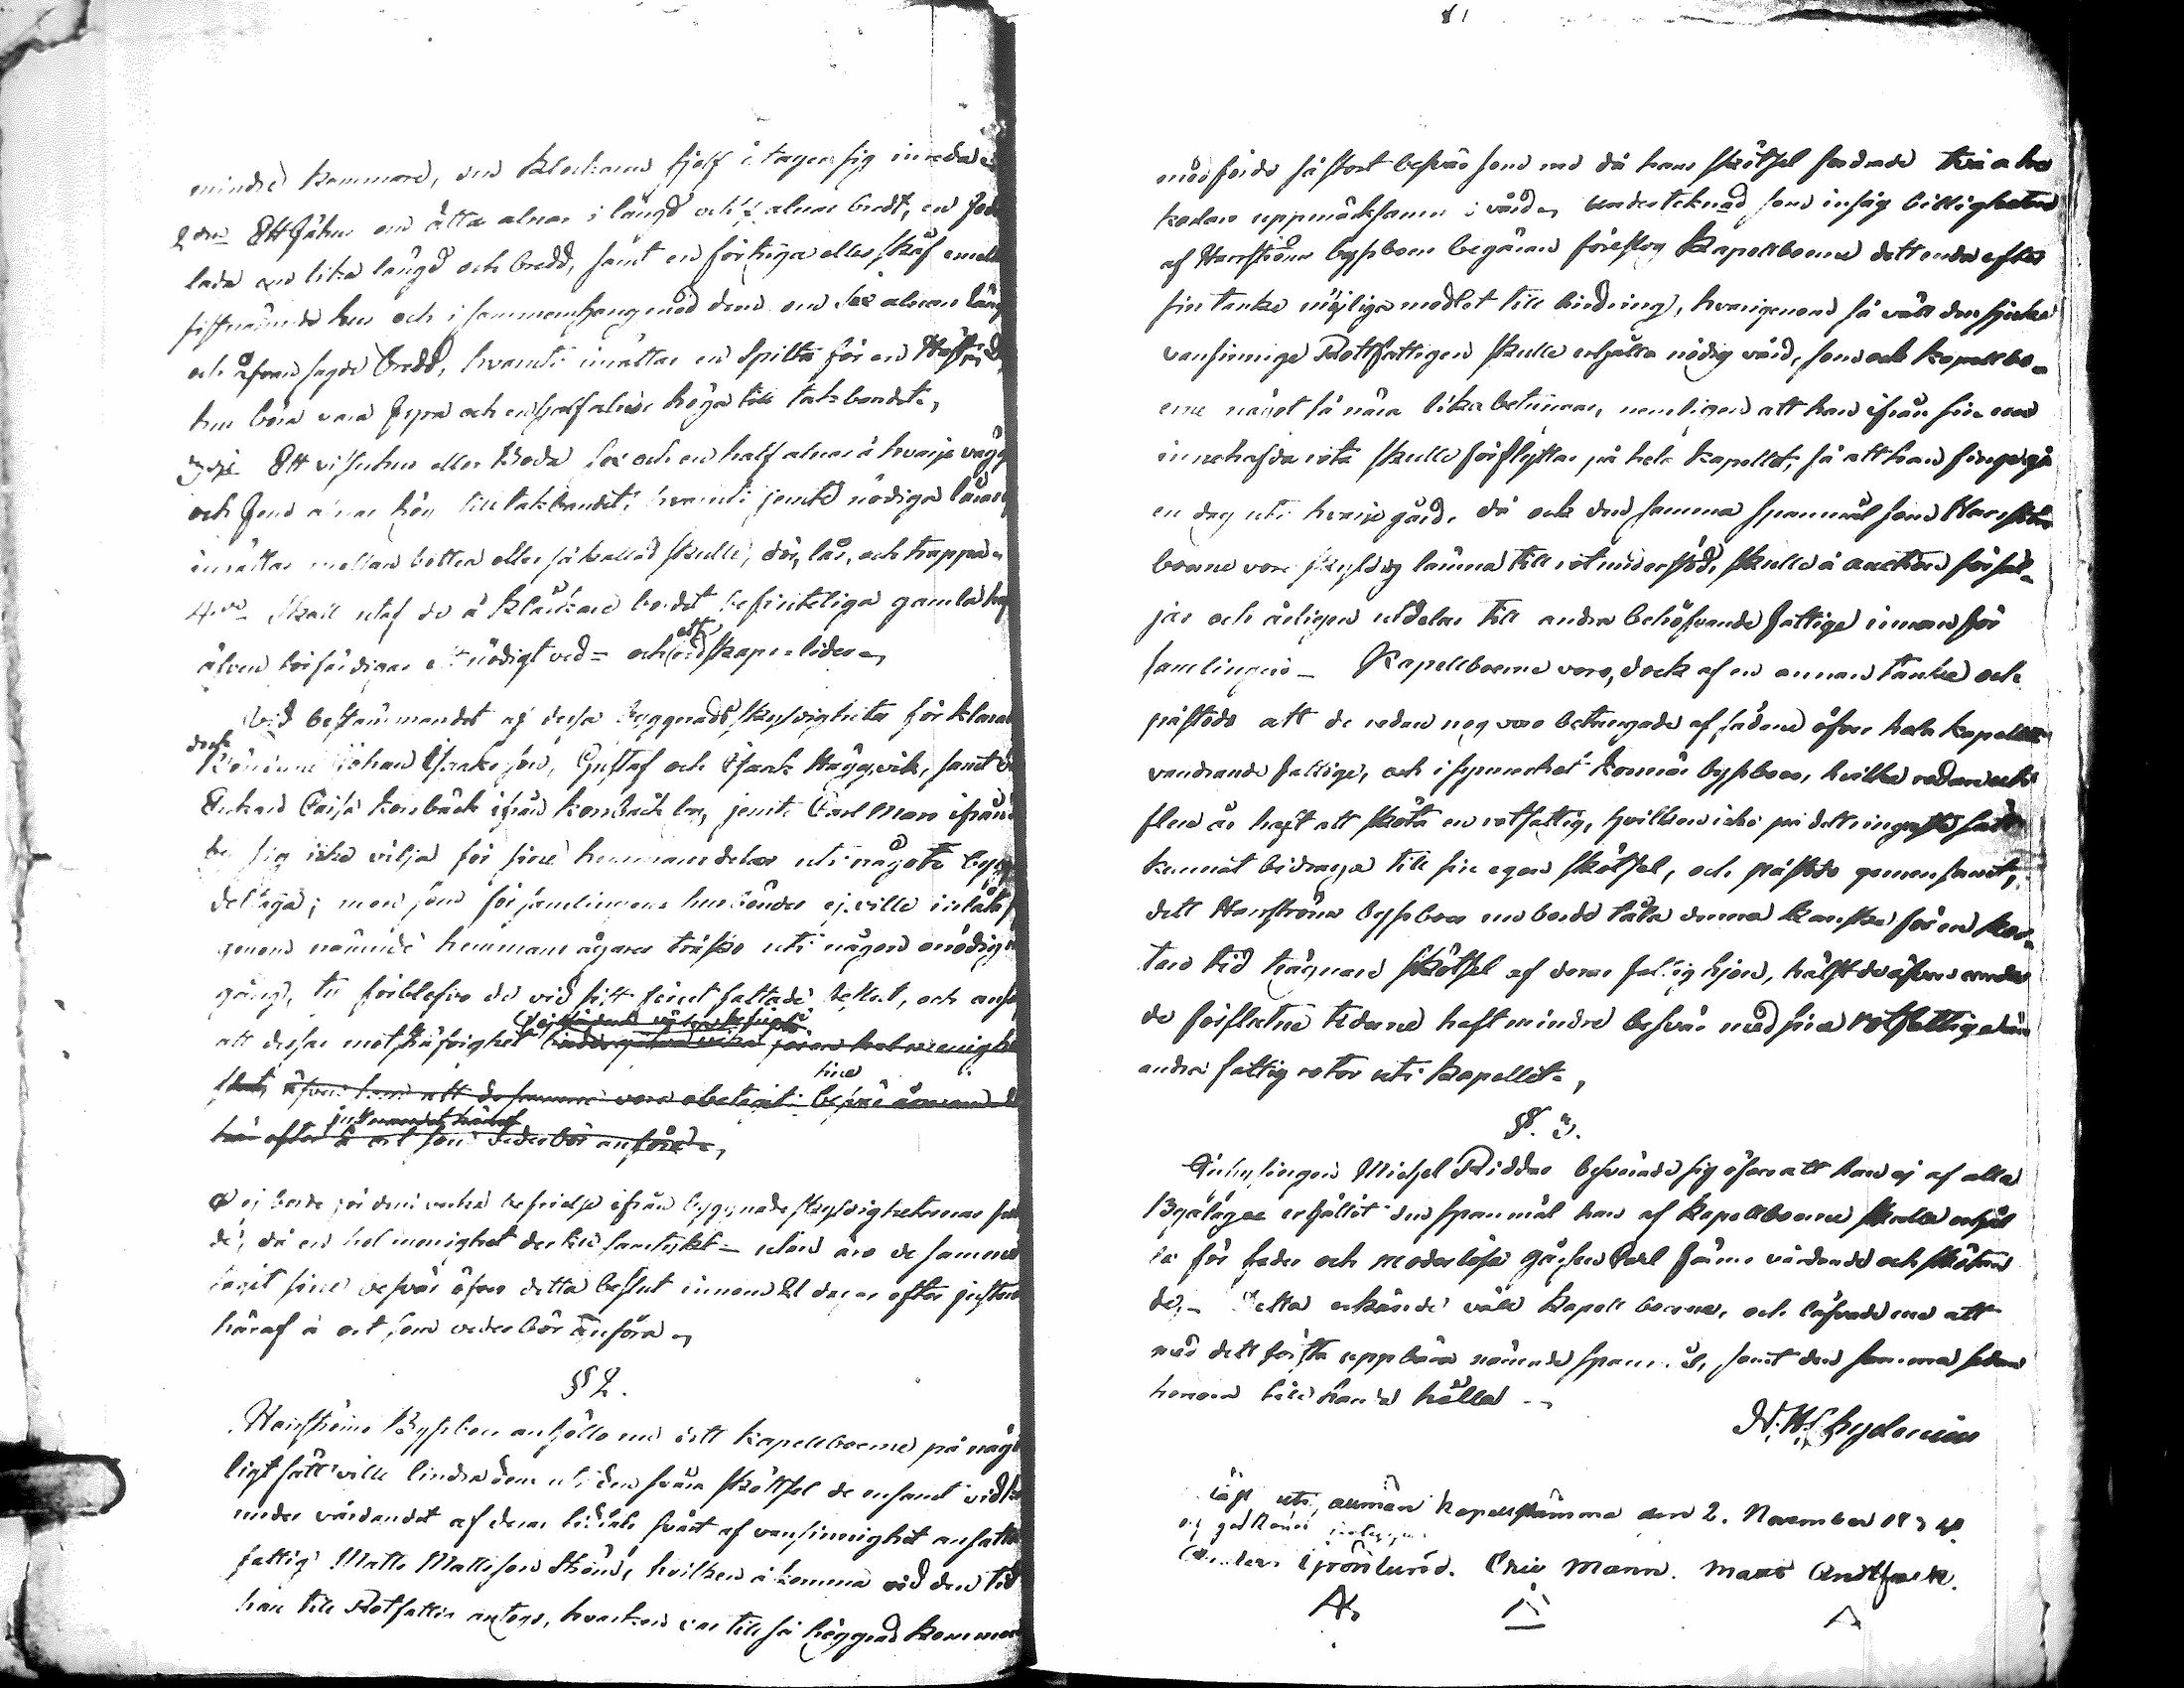 81
mindre kammare, den Klockaren sjelf åtager sig inreda
2dra Ett Fähus om åtta alnar i längd och 7 alnar bredt, en foder
lada om lika längd och bredd, samt en förstuga eller skjul emellan
sistnämnde hus och i sammanhang med dem om sex alnars längd
och åfvan sagde bredd, hvaruti inrättas en Spilta för en Häst,
hus böra vara fyra och en half alnar höga till takbandet,
3dje Ett vishus eller Boda sex och en half alnar å hvarje vägg
och fem alnar hög till takbandet; hvaruti jemte nödiga lårar
inrättas mellan botten eller så kallad skulle, dör, lås, och trappa
4de Skall utaf de å Klåckare bordet befinteliga gamla hus
äfven förfärdigas ett nödigt ved- och ett redskaps-lider
Vid bestämmandet af dessa byggnads skyldigheter för klockaren
dock
Bönderne Johan Isaksson, Gustaf och Isak Häggvik, samt
Enkan Caisa Korsbäck ifrån Korsbäck by, jemte Carl Mars ifrån
by sig icke vilja för sine hemmansdelar uti något bygg
deltaga; men som församlingens husbönder ej ville inlåta
genom nämnde hemmans ägares tredsko uti någon onödig
gång, ty förblefvo de vid sitt förut fattade beslut, och ansågo
att dessas motsträfvighet
sine
skett, äfven som att de samma voro obetagit besvär innom
justerandet häraf
här efter å ort som vederbör anföra,
ej borde för dem verka befrielse ifrån byggnads skyldigheternas full
de, då en hel menighet dertill samtykt - utan äro de samma
tagit sine besvär öfver detta beslut innom 21 dagar efter justerandet
häraf å ort som vederbör anföra
§ 2.
Harrströms Byssboer anhöllo om att kapellboerne på något
ligt sätt ville lindra dem uti den svåra skötsel de ensamt vidkännas
under vårdandet af deras ledigt svårt af vansinnighet ansatte
fattig Matts Mattsson Ström, hvilken i komma vid den tid
han till Rotfattig antogs, hvarken var till så höggrad kommen
medförde så stort besvär som nu då hans skötsel fordrade två a tre
karlars uppmärksamme vård, undertecknad som insåg billigheten
af Harrströms byssboers begäran föreslog Kapellboerne dett enda efter
sin tanke möjliga medlet till lindring, hvarigenom så väll den sjuke
vansinnige Rottfattigen skulle erhålla nödig vård, som ock kapellbo-
erne något så nära lika betungas, nemligen att han ifrån sin nu
innehafda rote skulle förflyttas på hela kapellet, så att han finge gå
en dag uti hvarje gård, då ock den samma spannmål som Harrström
boerne vore skyldig lämna till rotunderstöd, skulle å auction försäl-
jas och årligen utdelas till andra behöfvande fattige innom för
samlingen - Kapellboerne voro dock af en annan tanke och
påstodo att de redan nog voro betungade af sådane öfver hela kapellet
vandrande fattige, och i synnerhet Korsnäs byssboer, hvilka redan uti
flere år haft att sköta en rotfattig, hvilken icke på dett ringaste sätt
kunnat bidraga till sin egen skötsel, och påstodo gemensamt,
dett Harrströms byssboer nu borde tåla denna kanske för en kor-
tare tid trägnare skötsel af deras fattighjon, hälst de äfven under
de förflutne tiderne haft mindre besvär med sina rotfattige än
andra fattig rotor uti kapellet,
§. 3.
Inhysingen Michel Riddar besvärade sig öfver att han ej af alla
Byalagen erhållit den spanmål han af Kapellboerne skulle erhål
la för fader och moderlösa gåssen Carl Järns vårdande och skötan
de, - Detta erkände väll Kapell boerne, och låfvade nu att
med dett första uppbära nämnde spanmål, samt den samma sedan
honom till handa hålla -
N. H. Chydenius
uti allmän Kapellstämma den 2. November
Anders Grönlund. Eric Mann. Mats Andtfolk.